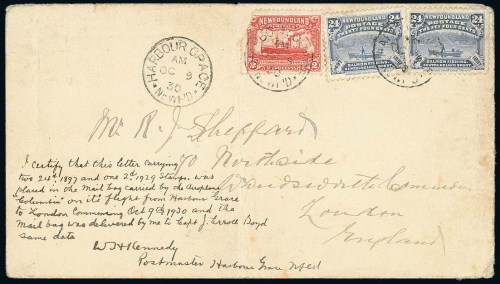 HARBOUR GRACE
AM
OC 9
30
NEWF'D
NEWFOUNDLAND
2 2
NEWFOUNDLAND
24 POSTAGE 24
TWENTY FOUR CENTS
SALMON FISHING
NEWFOUNDLAND
24 POSTAGE 24
TWENTY FOUR CENTS
SALMON FISHING
Mr R. J. Sheppard
70 Northside
Wandsworth Common
London
England
I certify that this letter carrying
two 24cts 1897 and one 2ct 1929 stamps, was
placed in the Mail bag carried by the aeroplane
"Columbia" on its flight from Harbour Grace
to London Commencing Oct 9th 1930 and the
Mail bag was delivered by me to Capt J. Erroll Boyd
same date
W H Kennedy
Postmaster Harbour Grace Nfld